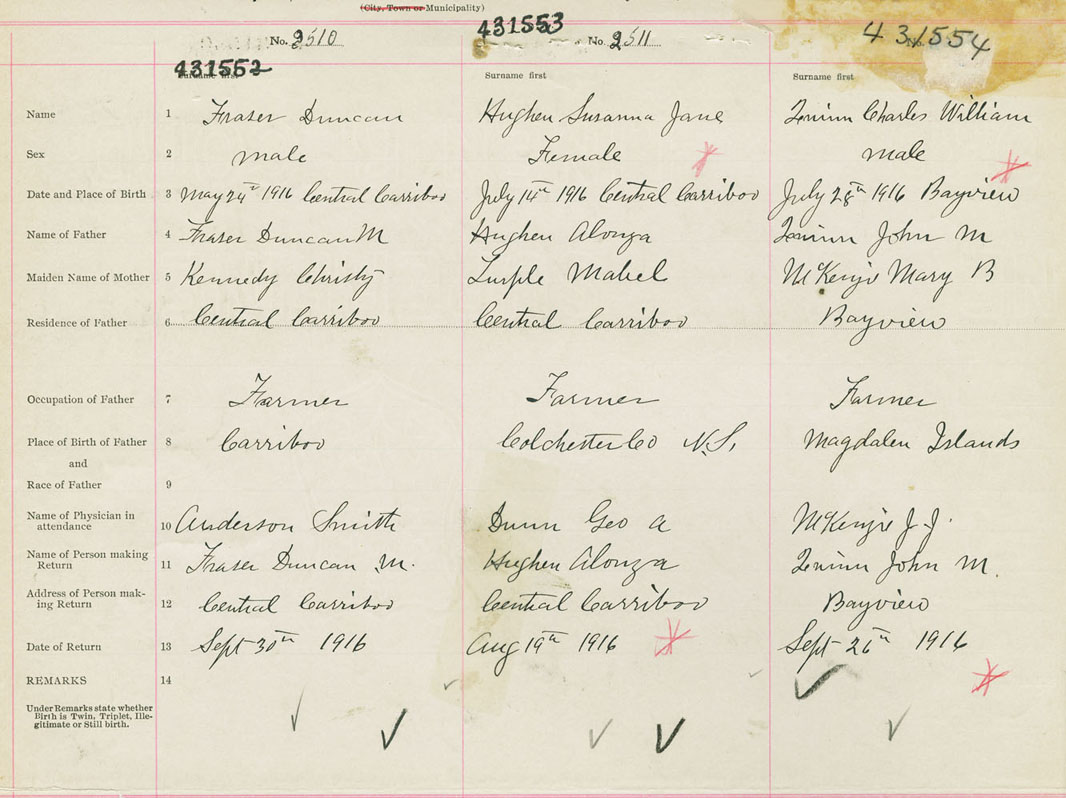 (City, Town or Municipality)
431553
431554
No. 2510
No. 2511
No.
431552
Surname first
Surname first
Surname first
Name 1 Fraser Duncan Hughen Susanna Jane Charles William
Sex 2 male Female male
Date and Place of Birth 3 May 24th 1916 Central Carriboo July 14th 1916 Central Carriboo July 28th 1916 Bayview
Name of Father 4 Fraser Duncan M Hughen Alonza John M
Maiden Name of Mother 5 Kennedy Christy Turple Mabel McKenzie Mary B
Residence of Father 6 Central Carriboo Central Carriboo Bayview
Occupation of Father 7 Farmer Farmer Farmer
Place of Birth of Father 8 Carriboo Colchester Co N.S. Magdalen Islands
and
Race of Father 9
Name of Physician in
attendance 10 Anderson Smith Dunn Geo A McKenzie J. J.
Name of Person making
Return 11 Fraser Duncan M. Hughen Alonza John M.
Address of Person mak-
ing Return 12 Central Carriboo Central Carriboo Bayview
Date of Return 13 Sept 30th 1916 Aug 19th 1916 Sept 26th 1916
REMARKS 14
Under Remarks state whether
Birth is Twin, Triplet, Ille-
gitimate or Still birth.